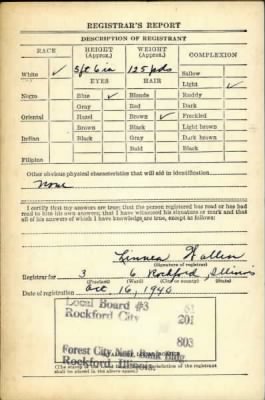 REGISTRAR'S REPORT
DESCRIPTION OF REGISTRANT
RACE HEIGHT (Approx.) WEIGHT (Approx.) COMPLEXION
5 ft 6 in 125 pds Sallow
White ✓ EYES HAIR Light ✓
Negro Blue ✓ Blonde Ruddy
Gray Red Dark
Oriental Hazel Brown ✓ Freckled
Brown Black Light brown
Indian Black Gray Dark brown
Bald Black
Filipino
Other obvious physical characteristics that will aid in identification
None
I certify that my answers are true; that the person registered has read or has had
read to him his own answers; that I have witnessed his signature or mark and that
all of his answers of which I have knowledge are true, except as follows:
Linnea Wallin
(Signature of registrar)
Registrar for 3 6 Rockford, Illinois
(Precinct) (Ward) (City or county) (State)
Date of registration Oct 16, 1940
Local Board #3 81
Rockford City 201
803
Forest City Natl Bank Bldg
Rockford, Illinois